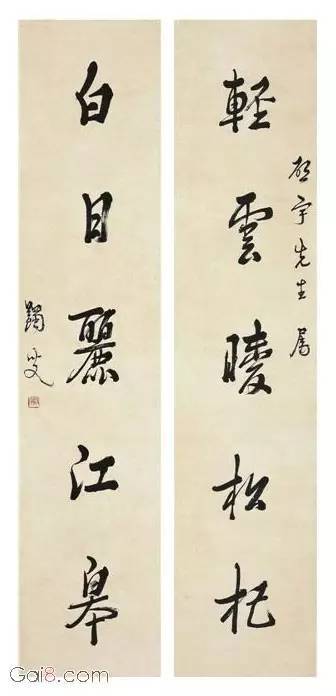 輕雲曖松杞
宇先生属
白日麗江皋
蠲叟
Gai8.com